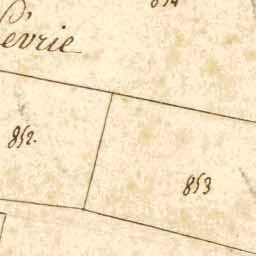 854
evrie
852.
853